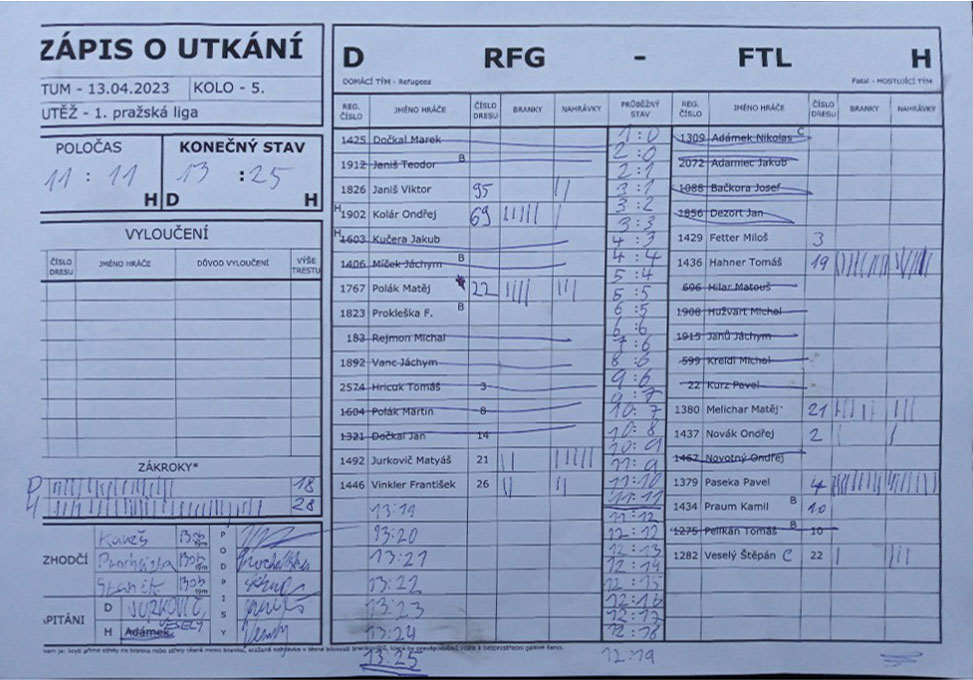 ZÁPIS O UTKÁNÍ
TUM - 13.04.2023 KOLO - 5.
UTĚŽ - 1. pražská liga
POLOČAS KONEČNÝ STAV
11 : 11 13 : 25
H D H
VYLOUČENÍ
ČÍSLO DRESU JMÉNO HRÁČE DŮVOD VYLOUČENÍ VÝŠE TRESTU
ZÁKROKY*
D 18
H 28
ZHODČÍ
PODPISY
APITÁNI
D JURKOVIČ
H Adámek VESELÝ
D RFG - FTL H
DOMÁCÍ TÝM - Refugees Fatal - HOSTUJÍCÍ TÝM
REG. ČÍSLO JMÉNO HRÁČE ČÍSLO DRESU BRANKY NAHRÁVKY PRŮBĚŽNÝ STAV REG. ČÍSLO JMÉNO HRÁČE ČÍSLO DRESU BRANKY NAHRÁVKY
1425 Dočkal Marek
1912 Janiš Teodor B
1826 Janiš Viktor 95
H 1902 Kolár Ondřej 69
H 1603 Kučera Jakub
1406 Míček Jáchym B
1767 Polák Matěj 22
1823 Prokleška F. B
183 Rejmon Michal
1892 Vanc Jáchym
2574 Hricuk Tomáš 3
1604 Polák Martin 8
1321 Dočkal Jan 14
1492 Jurkovič Matyáš 21
1446 Vinkler František 26
13:19
13:20
13:21
13:22
13:23
13:24
13:25
1:0
2:0
2:1
3:1
3:2
3:3
4:3
4:4
5:4
5:5
6:5
6:6
7:6
8:6
9:6
9:7
10:7
10:8
10:9
11:9
11:10
11:11
11:12
12:12
12:13
12:14
12:15
12:16
12:17
12:18
12:19
1309 Adámek Nikolas C
2072 Adamiec Jakub
1088 Bačkora Josef
1856 Dezort Jan
1429 Fetter Miloš 3
1436 Hahner Tomáš 19
696 Hilar Matouš
1908 Hužvárt Michel
1915 Janů Jáchym
599 Kreidl Michal
22 Kurz Pavel
1380 Melichar Matěj 21
1437 Novák Ondřej 2
1467 Novotný Ondřej
1379 Paseka Pavel 4
1434 Praum Kamil B 10
1275 Pelikán Tomáš B 10
1282 Veselý Štěpán C 22